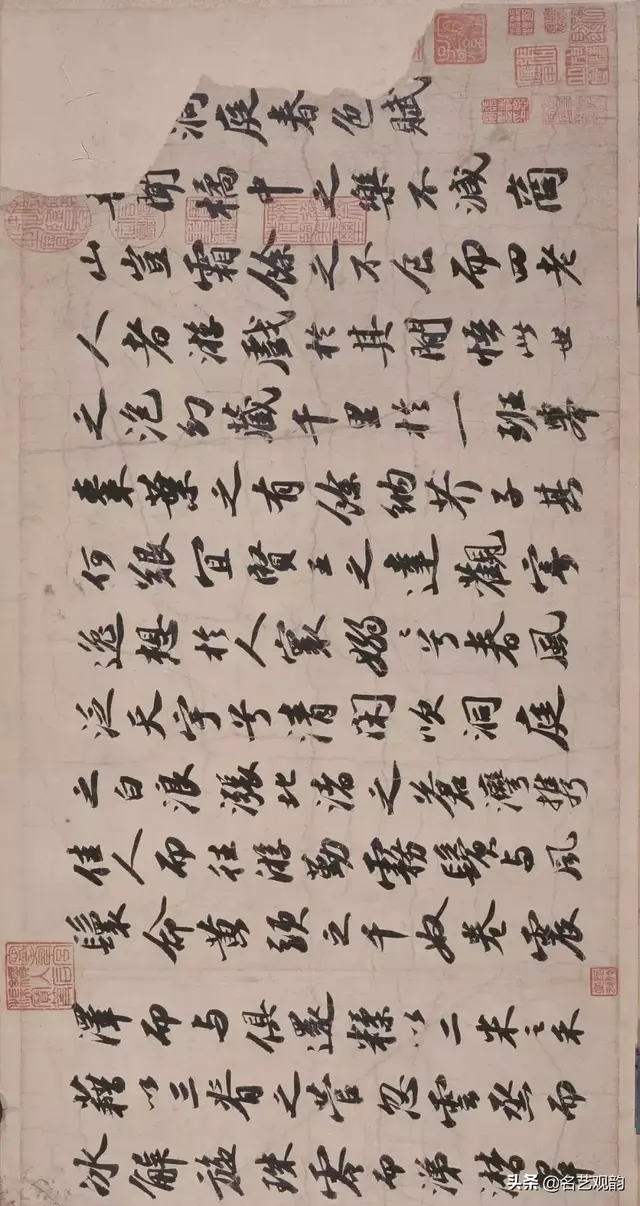 洞庭春色賦
聞橘中之樂不減商
山豈霜餘之不食而四老
人者游戲於其間悟此世
之泡幻藏千里於一班舉
棗葉之有餘納芥子其
何艱宜賢王之達觀寄
逸想於人寰嫋〻兮春風
泛天宇兮清閑吹洞庭
之白浪漲北渚之蒼灣攜
佳人而往游勤霧鬢与風
鬟命黃頭之千奴卷震
澤而与俱還糅以二米之禾
藉以三脊之菅忽雲烝而
冰解旋珠零而涕潸
头条 @名艺观韵